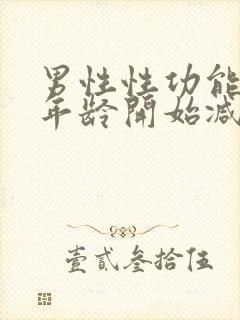 男性性功能
年龄開始减
壹貳叁拾伍